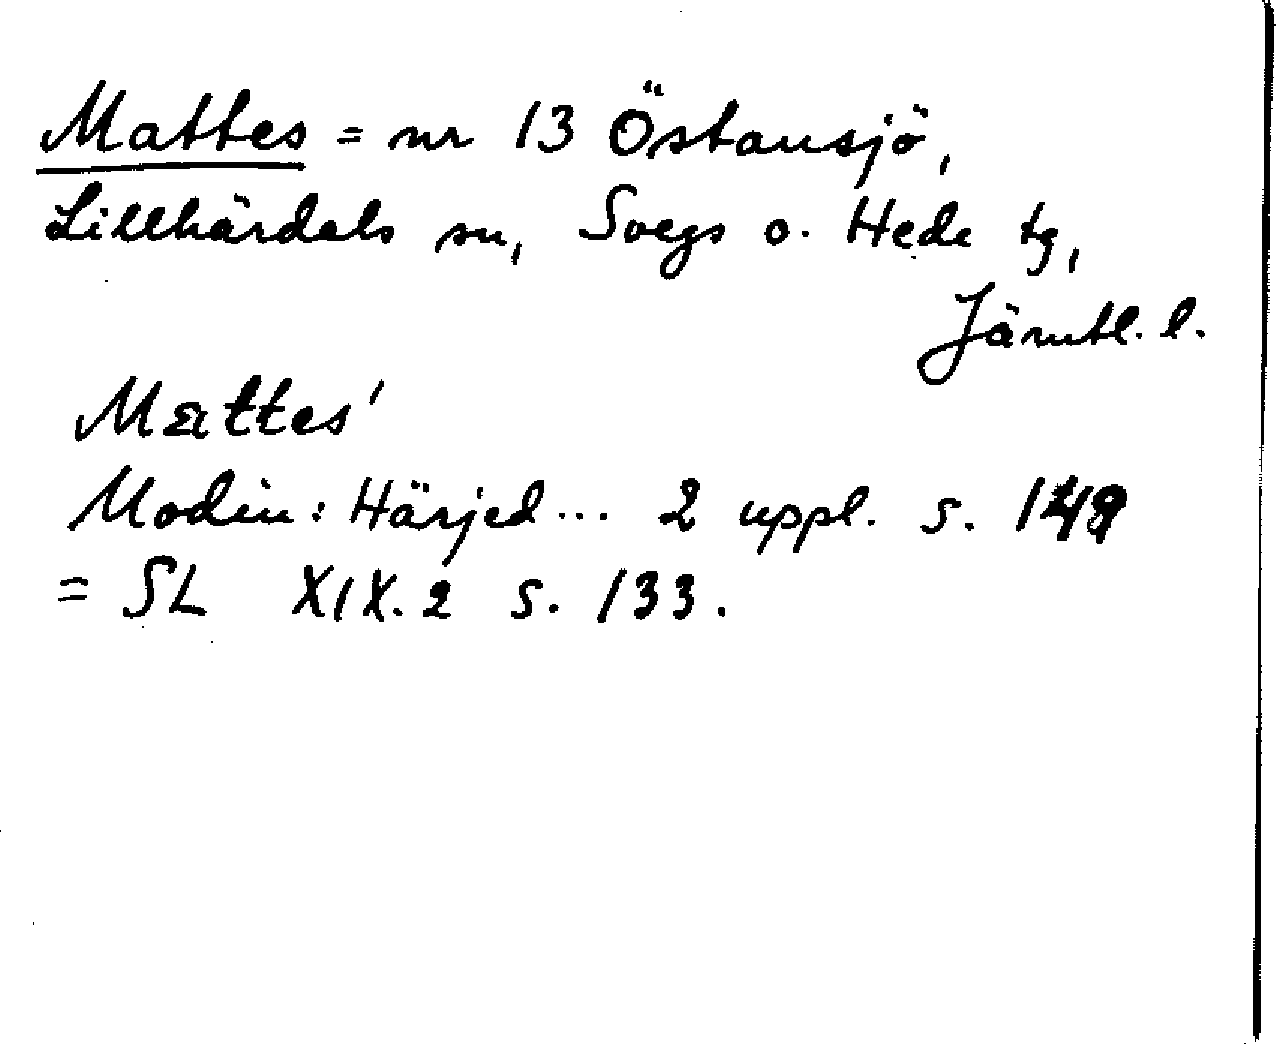 Mattes = nr 13 Östansjö,
Lillhärdals sn, Svegs o. Hede tg,
Jämtl. l.
Mattes'
Modin: Härjed... 2 uppl. s. 149
= SL XIX.2 s. 133.